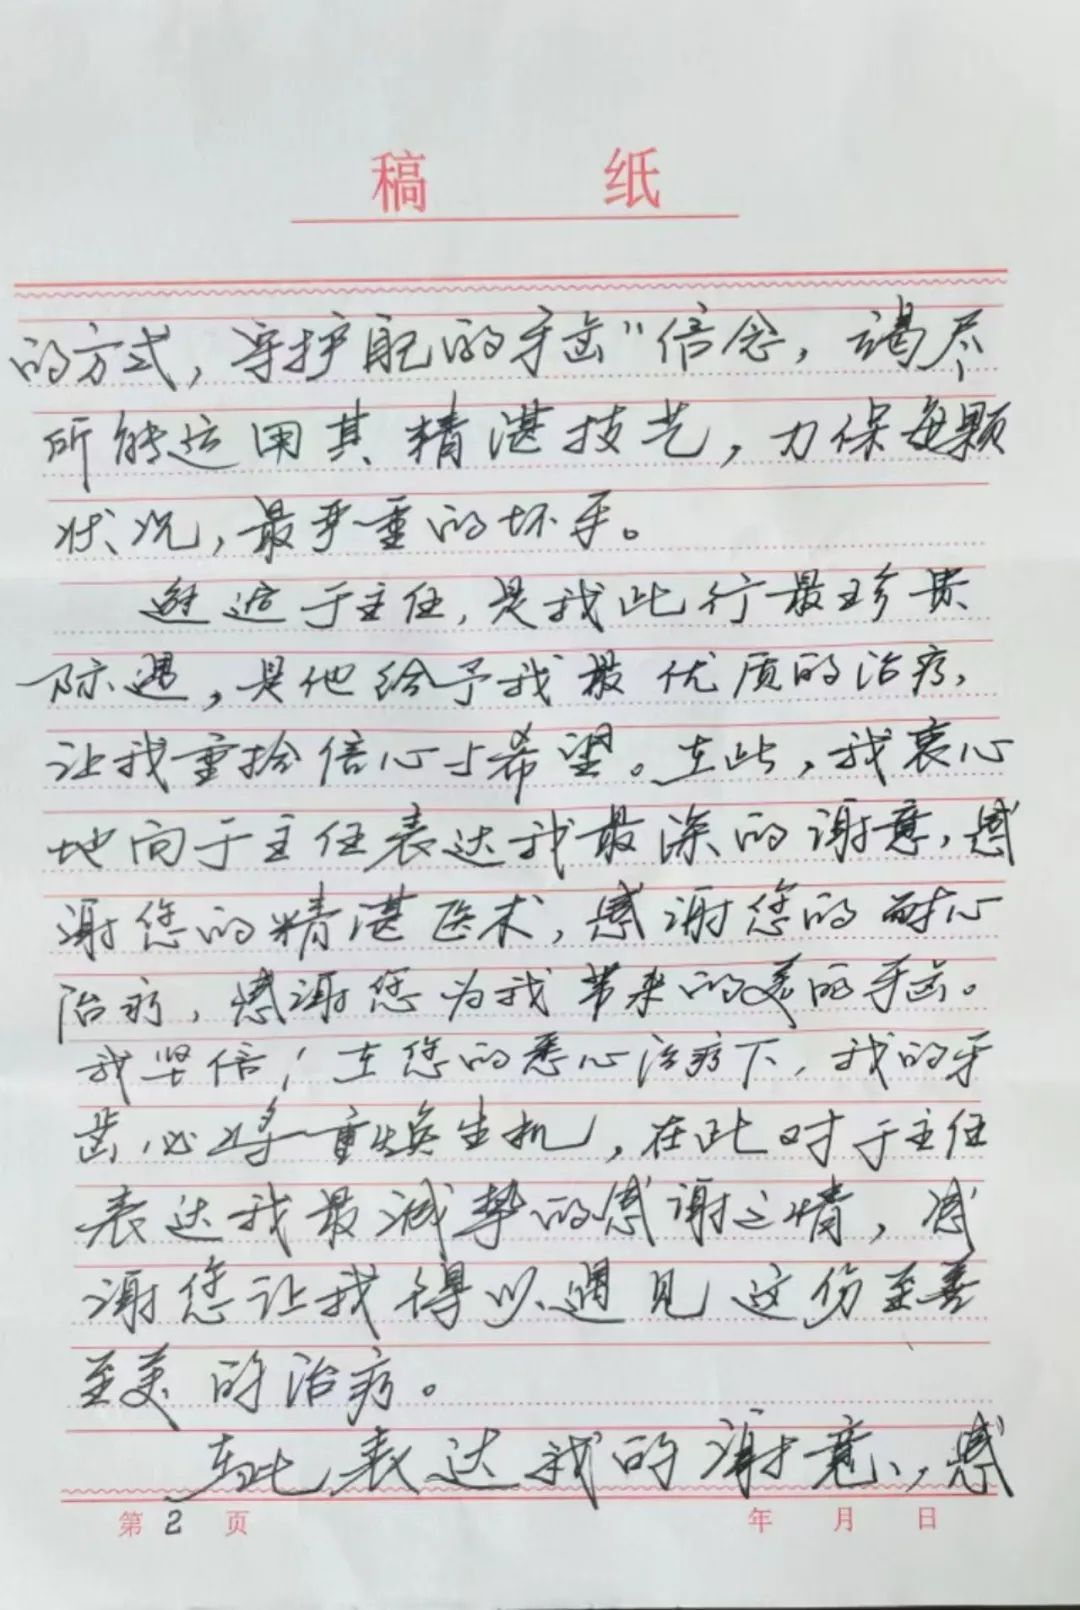 稿 纸
的方式，守护自己的牙齿"信念，竭尽
所能运用其精湛技艺，力保每颗
状况，最严重的坏牙。
邂逅于主任，是我此行最珍贵
际遇，是他给予我最优质的治疗，
让我重拾信心与希望。在此，我衷心
地向于主任表达我最深的谢意，感
谢您的精湛医术，感谢您的耐心
治疗，感谢您为我带来的美丽牙齿。
我坚信！在您的悉心治疗下，我的牙
齿，必将重焕生机，在此对于主任
表达我最诚挚的感谢之情，感
谢您让我得以遇见这份至善
至美的治疗。
在此，表达我的谢意，感
第2页 年 月 日